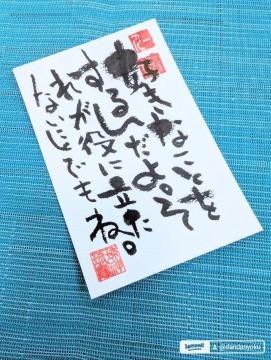 好きなことを
するんだよ。そ
れが役に立た
ないことでもね。
@dandanyoku